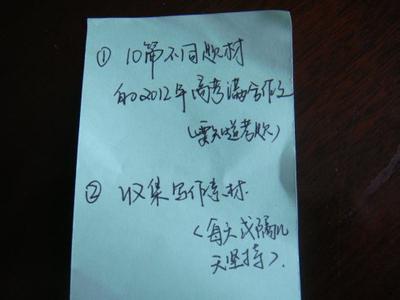 ① 10篇不同题材
的2012年高考满分作文
(要知道考题)
② 收集写作素材.
(每天或隔几
天坚持).